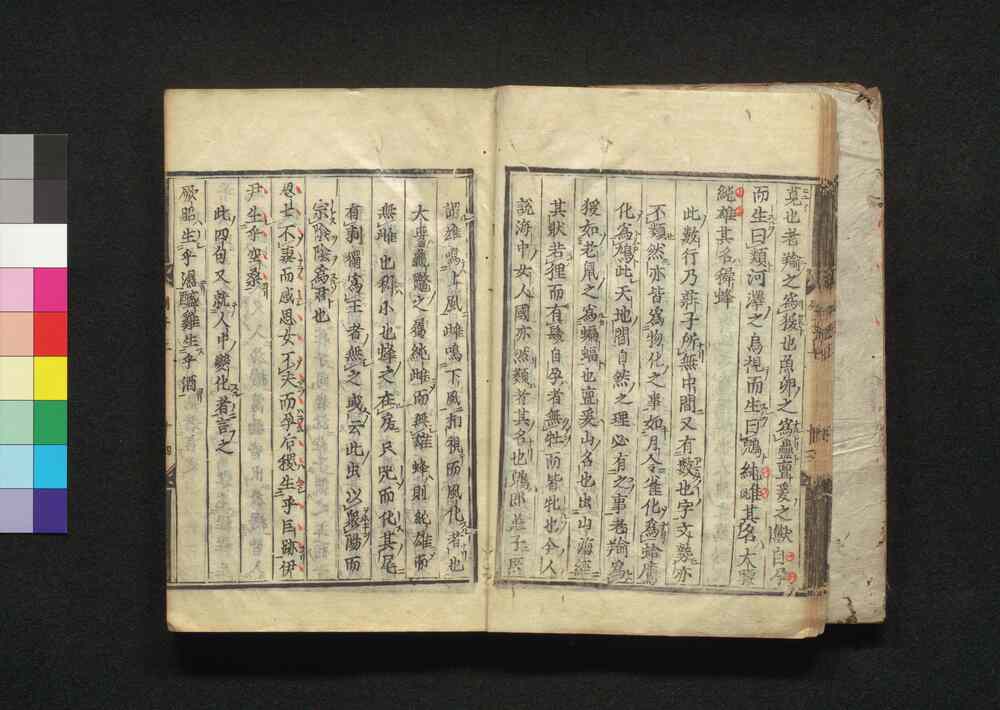 莧也老羭之爲猨也魚卵之爲蟲亶爰之獸自孕
而生曰類河澤之鳥視而生曰鶂純雌其名大䐁
純雄其名稺蜂
此數行乃莊子所無中間又有數也字文勢亦
不類然亦皆爲物化之事如月令雀化爲蛤鷹
化爲鳩此天地間自然之理必有之事老羭爲
猨如老鼠之爲蝙蝠也亶爰山名也出山海經
其狀若狸而有髮自孕者無牡而皆牝也今人
說海中女人國亦然類者其名也鶂即莊子所
謂雄鳴上風雌鳴下風相視而風化者也
大䐁龜鼈之屬純雌而無雄蜂則純雄而
無雌也稺小也蜂之在房只咒而化其尾
有刺獨爲王者無之或云此虫以衆陽而
宗陰陰爲君也
思士不妻而感思女不夫而孕后稷生乎巨跡伊
尹生乎空桑
此四句又就人中變化者言之
厥昭生乎濕醯雞生乎酒